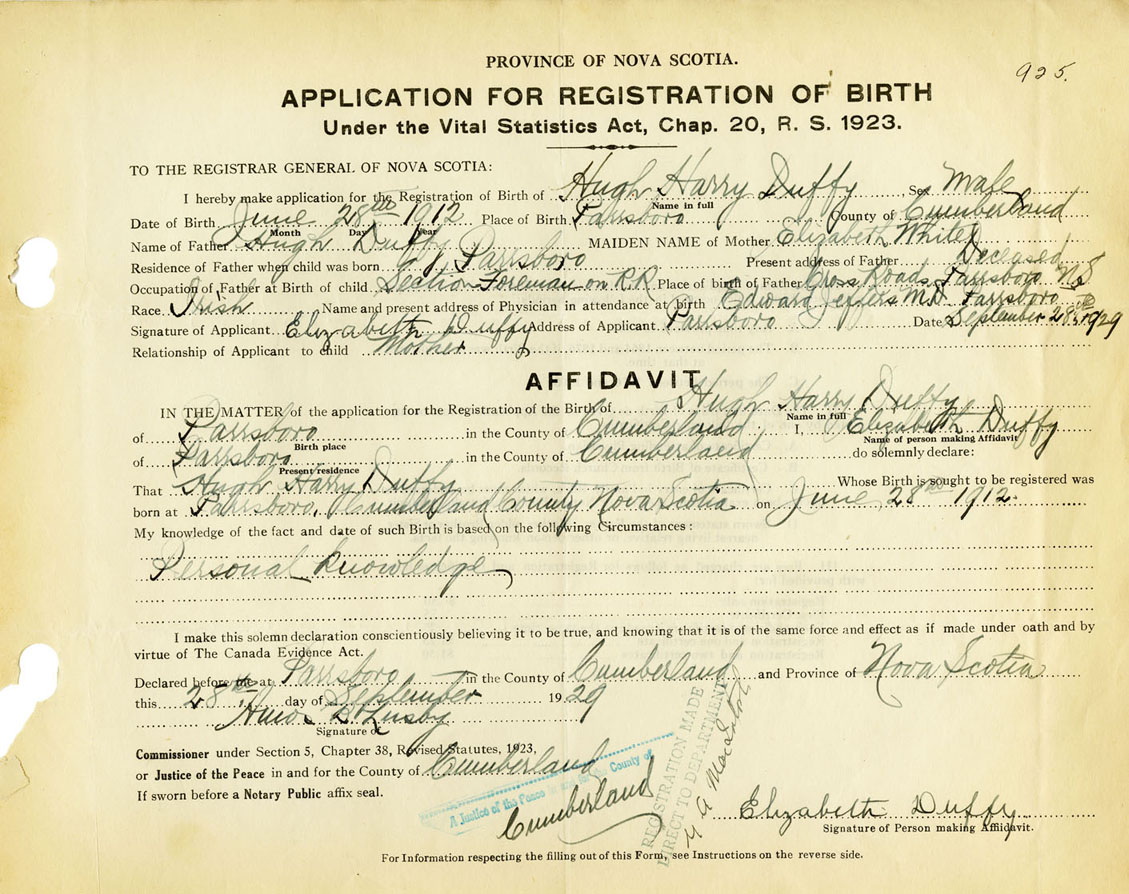 925.
PROVINCE OF NOVA SCOTIA.
APPLICATION FOR REGISTRATION OF BIRTH
Under the Vital Statistics Act, Chap. 20, R. S. 1923.
TO THE REGISTRAR GENERAL OF NOVA SCOTIA:
I hereby make application for the Registration of Birth of Hugh Harry Duffy Sex Male
Name in full
Date of Birth June 28th 1912 Place of Birth Parrsboro County of Cumberland
Month Day Year
Name of Father Hugh Duffy MAIDEN NAME of Mother Elizabeth White
Residence of Father when child was born Parrsboro Present address of Father Deceased
Occupation of Father at Birth of child Section Foreman on R.R. Place of birth of Father Cross Roads, Parrsboro N.S
Race. Irish Name and present address of Physician in attendance at birth Edward Jeffers M.D. Parrsboro
Signature of Applicant Elizabeth Duffy Address of Applicant Parrsboro Date September 28th 1929
Relationship of Applicant to child Mother
AFFIDAVIT
IN THE MATTER of the application for the Registration of the Birth of Hugh Harry Duffy
Name in full
of Parrsboro in the County of Cumberland I, Elizabeth Duffy
Birth place Name of person making Affidavit
of Parrsboro in the County of Cumberland do solemnly declare:
Present residence
That Hugh Harry Duffy Whose Birth is sought to be registered was
born at Parrsboro, Cumberland County Nova Scotia on June 28th 1912.
My knowledge of the fact and date of such Birth is based on the following Circumstances:
Personal knowledge
I make this solemn declaration conscientiously believing it to be true, and knowing that it is of the same force and effect as if made under oath and by
virtue of The Canada Evidence Act.
Declared before me at Parrsboro in the County of Cumberland and Province of Nova Scotia
this 28th day of September 1929
Amos Lusby
Signature of
Commissioner under Section 5, Chapter 38, Revised Statutes, 1923,
or Justice of the Peace in and for the County of Cumberland
If sworn before a Notary Public affix seal.
A Justice of the Peace in and for the County of
Cumberland
REGISTRATION MADE
DIRECT TO DEPARTMENT
Elizabeth Duffy
Signature of Person making Affidavit.
For Information respecting the filling out of this Form, see Instructions on the reverse side.